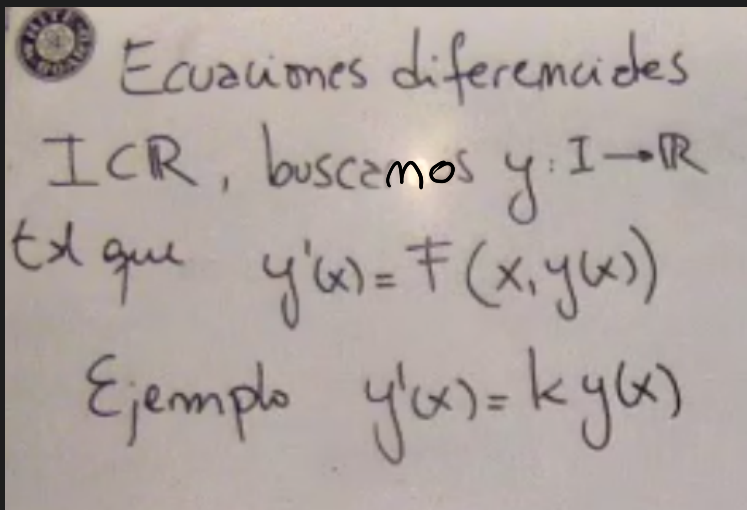 Ecuaciones diferenciales
I⊂ℝ, buscamos y: I→ℝ
tal que y'(x) = F(x, y(x))
Ejemplo y'(x) = k y(x)